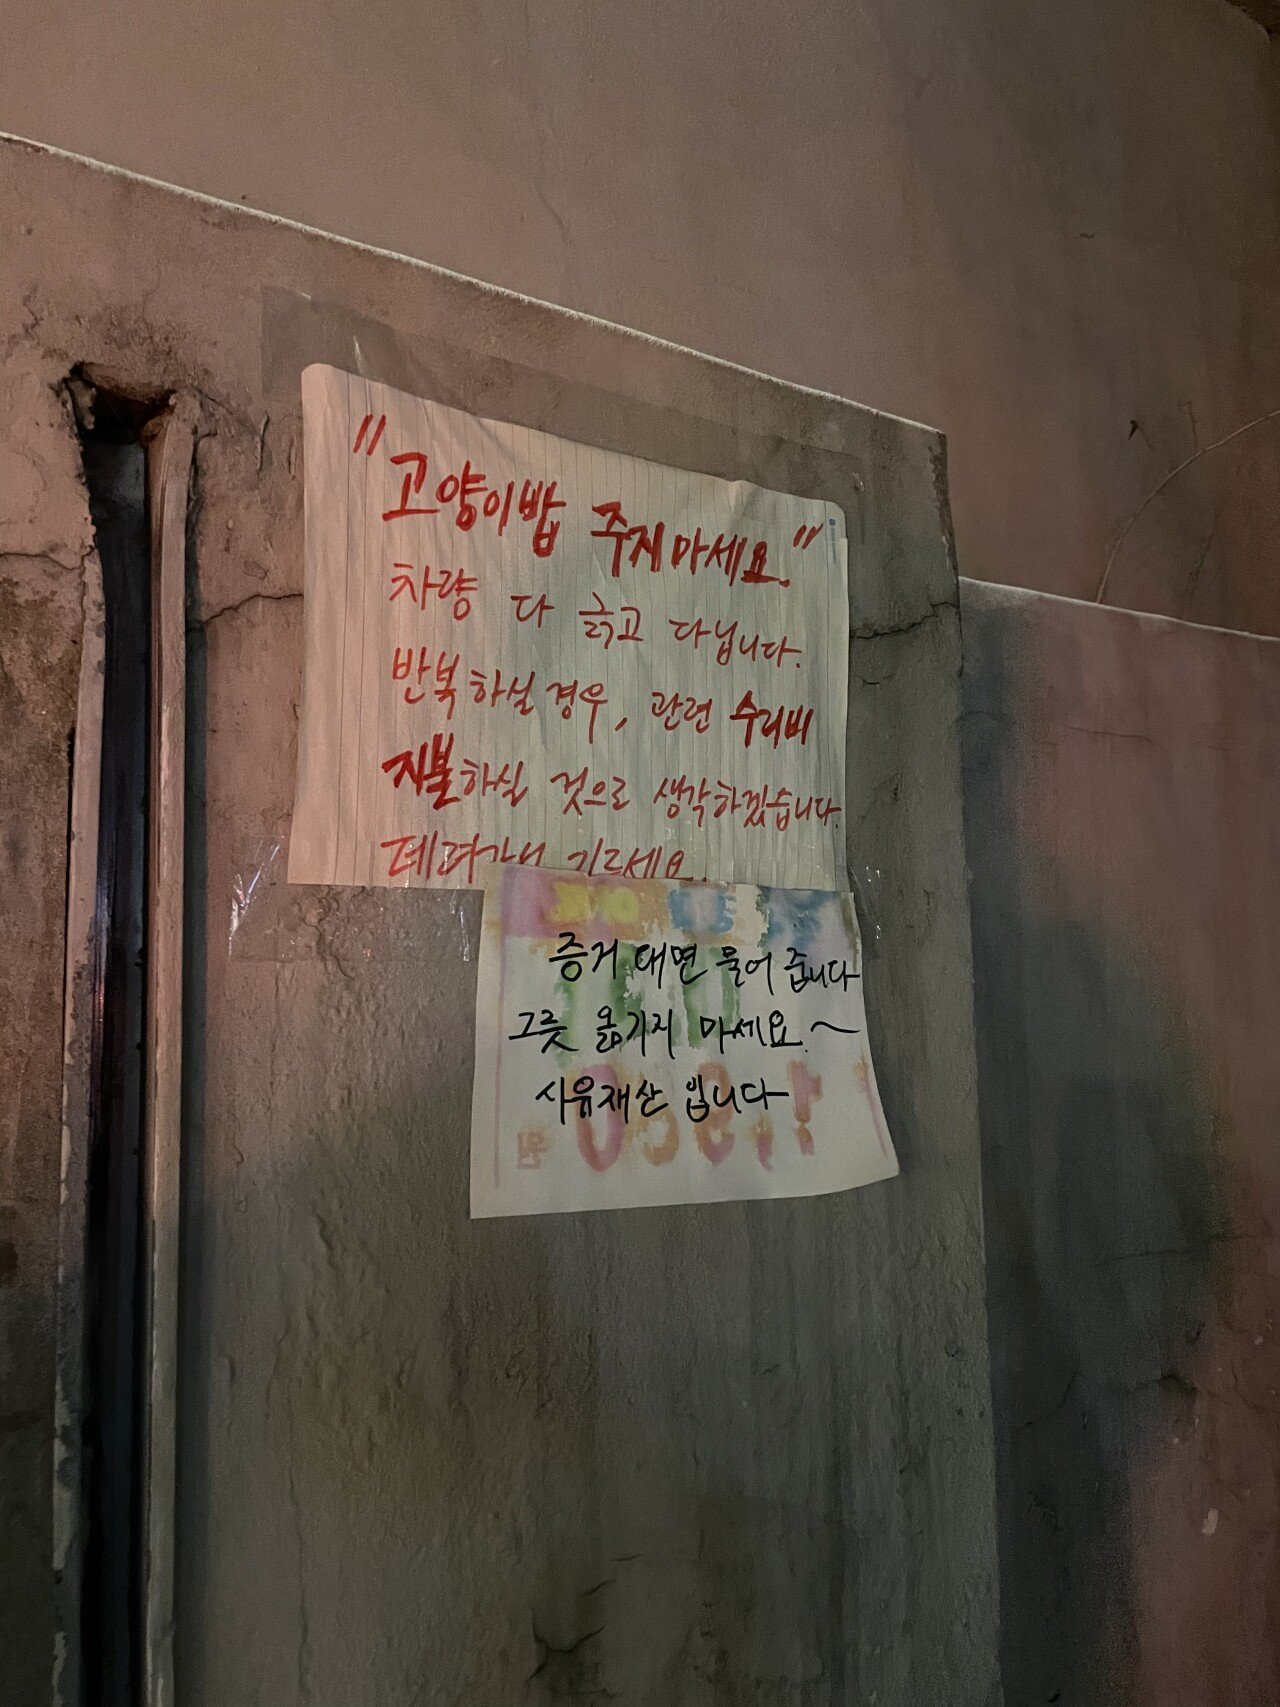 "고양이밥 주지마세요."
차량 다 긁고 다닙니다.
반복하실 경우, 관련 수리비
지불하실 것으로 생각하겠습니다.
데려가서 기르세요.
증거 대면 물어 줍니다
그릇 옮기지 마세요.~
사유재산 입니다